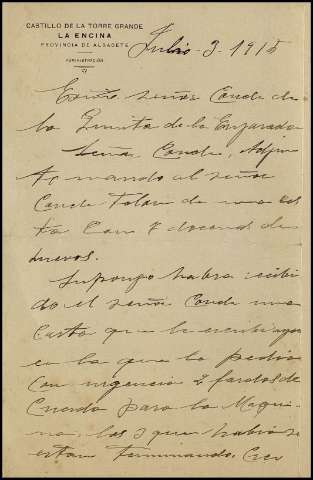 CASTILLO DE LA TORRE GRANDE
LA ENCINA
PROVINCIA DE ALBACETE
ADMINISTRACIÓN
Julio - 3 - 1915
Exmo Señor Conde de
la Quinta de la Enjarada
Señor Conde, Adjun
to mando al señor
Conde Talon de una ces
ta con 7 docenas de
huevos.
Supongo habra recibi
do el señor Conde una
carta que le escribi ayer
en la que le pedia
con urgencia 2 fardos de
Cuerda para la Maqui-
na, los 3 que habia se
estan terminando. Creo